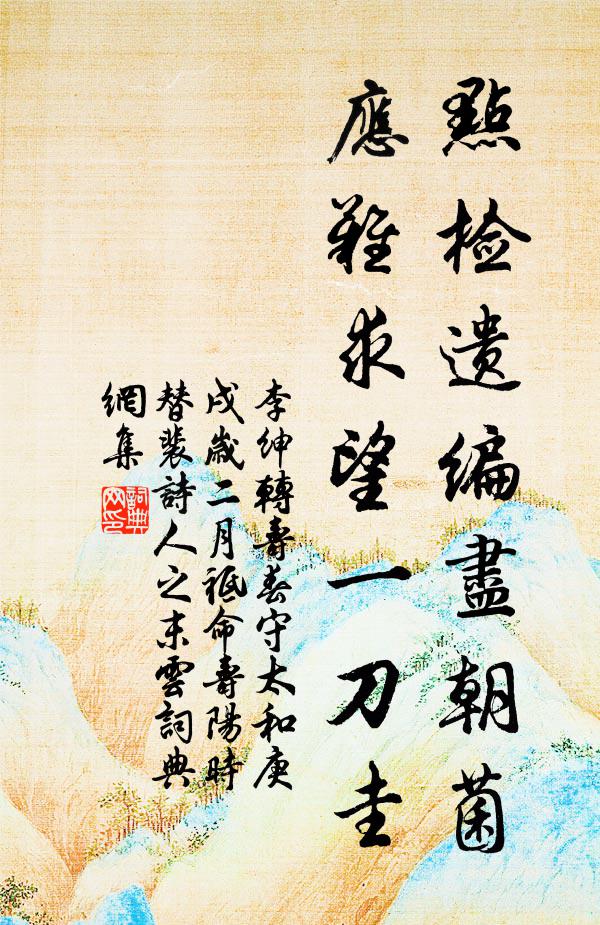 點檢遺編盡朝菌
應難求望一刀圭
李紳轉壽春守太和庚
戌歲二月祗命壽陽時
替裴詩人之末雲詞典
網集
詞典
网印